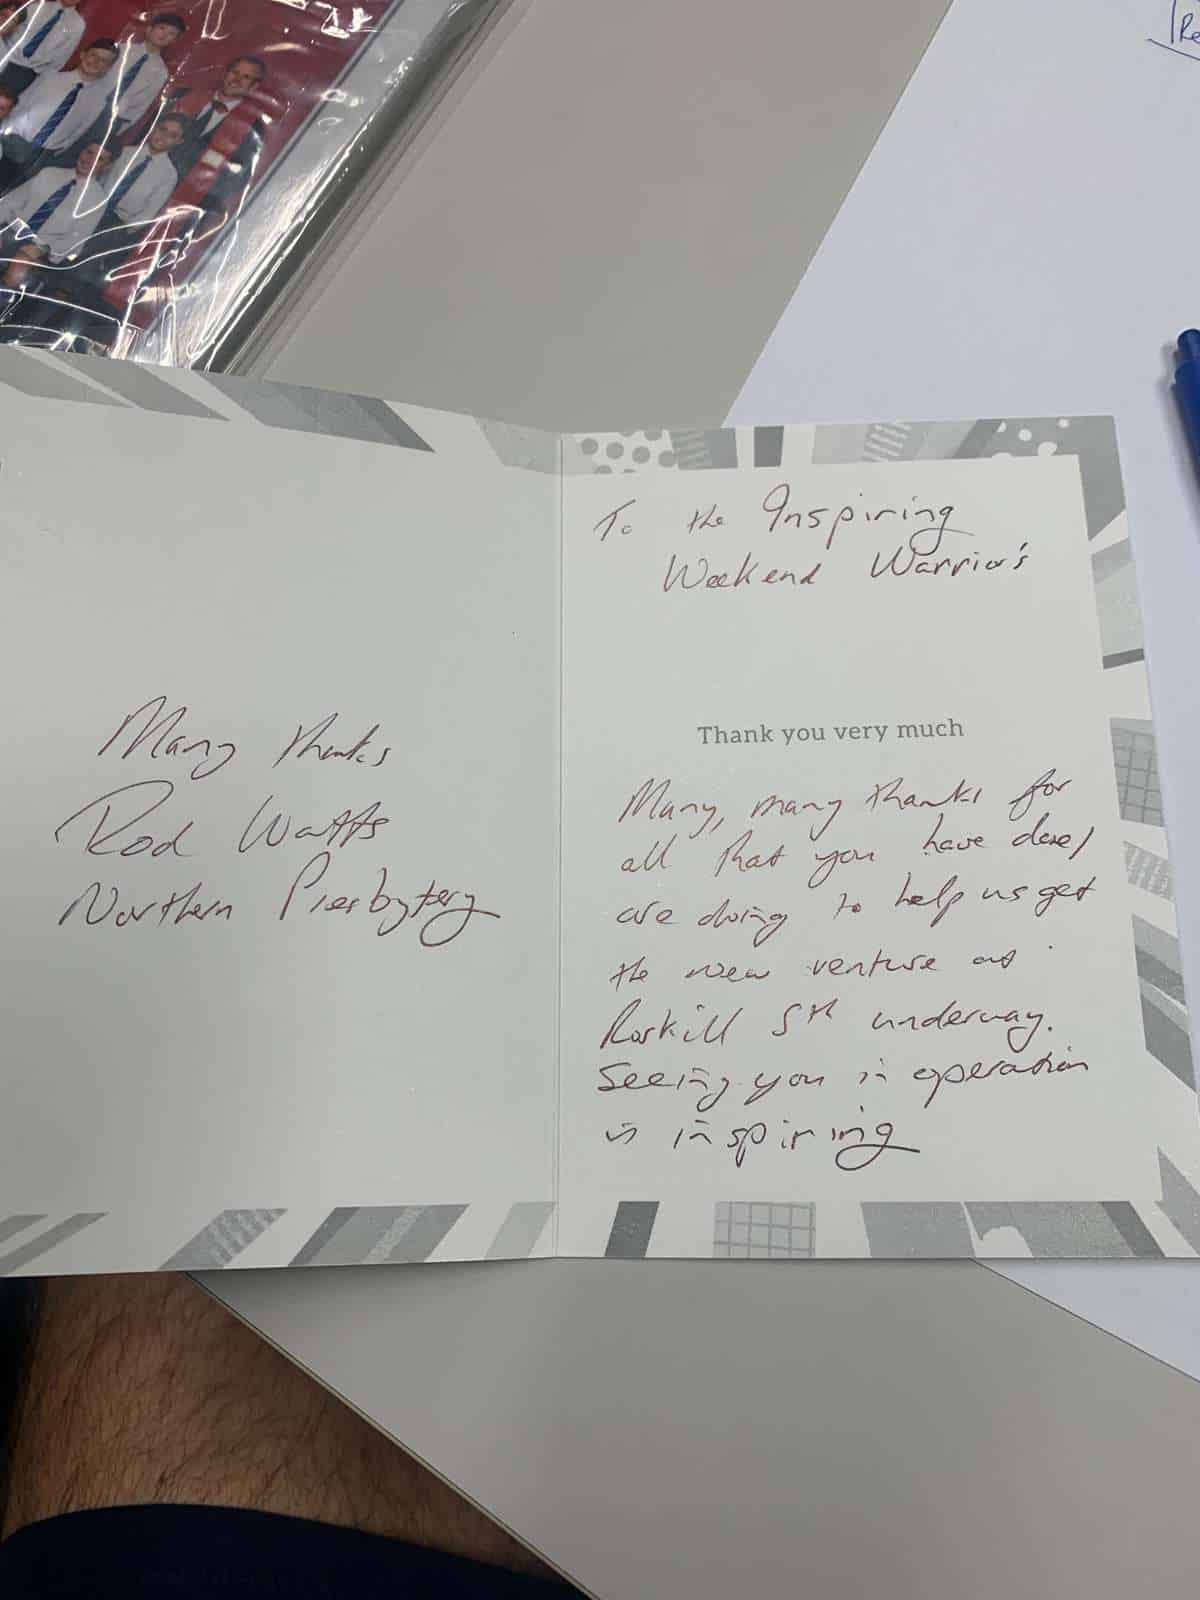 Many thanks
Rod Watts
Northern Presbytery
To the Inspiring
Weekend Warrior's
Thank you very much
Many, many thanks for
all that you have done/
are doing to help us get
the new venture at
Roskill Sth underway.
Seeing you in operation
is inspiring